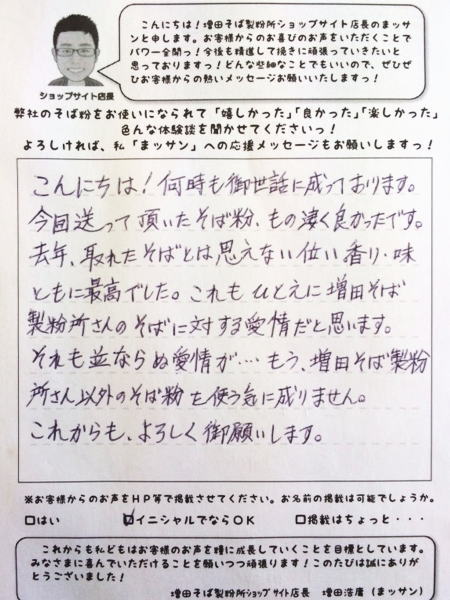 こんにちは！増田そば製粉所ショップサイト店長のまッサン
と申します。お客様からのお喜びのお声をいただくことで
パワー全開っ！今後も精進して挽きに頑張っていきたいと
思っておりますっ！どんな些細なことでもいいので、ぜひぜ
ひお客様からの熱いメッセージお願いいたしますっ！
ショップサイト店長
弊社のそば粉をお使いになられて「嬉しかった」「良かった」「楽しかった」
色んな体験談を聞かせてくださいっ！
よろしければ、私「まッサン」への応援メッセージもお願いしますっ！
こんにちは！何時も御世話に成っております。
今回送って頂いたそば粉、もの凄く良かったです。
去年、取れたそばとは思えない位い香り・味
ともに最高でした。これもひとえに増田そば
製粉所さんのそばに対する愛情だと思います。
それも並ならぬ愛情が…もう、増田そば製粉
所さん以外のそば粉を使う気に成りません。
これからも、よろしく御願いします。
※お客様からのお声をHP等で掲載させてください。お名前の掲載は可能でしょうか。
□はい ☑イニシャルでならOK □掲載はちょっと・・・
これからも私どもはお客様のお声を糧に成長していくことを目標としています。
みなさまに喜んでいただけることを願いつつ頑張ります！このたびは誠にありが
とうございました！
増田そば製粉所ショップサイト店長 増田浩庸（まッサン）